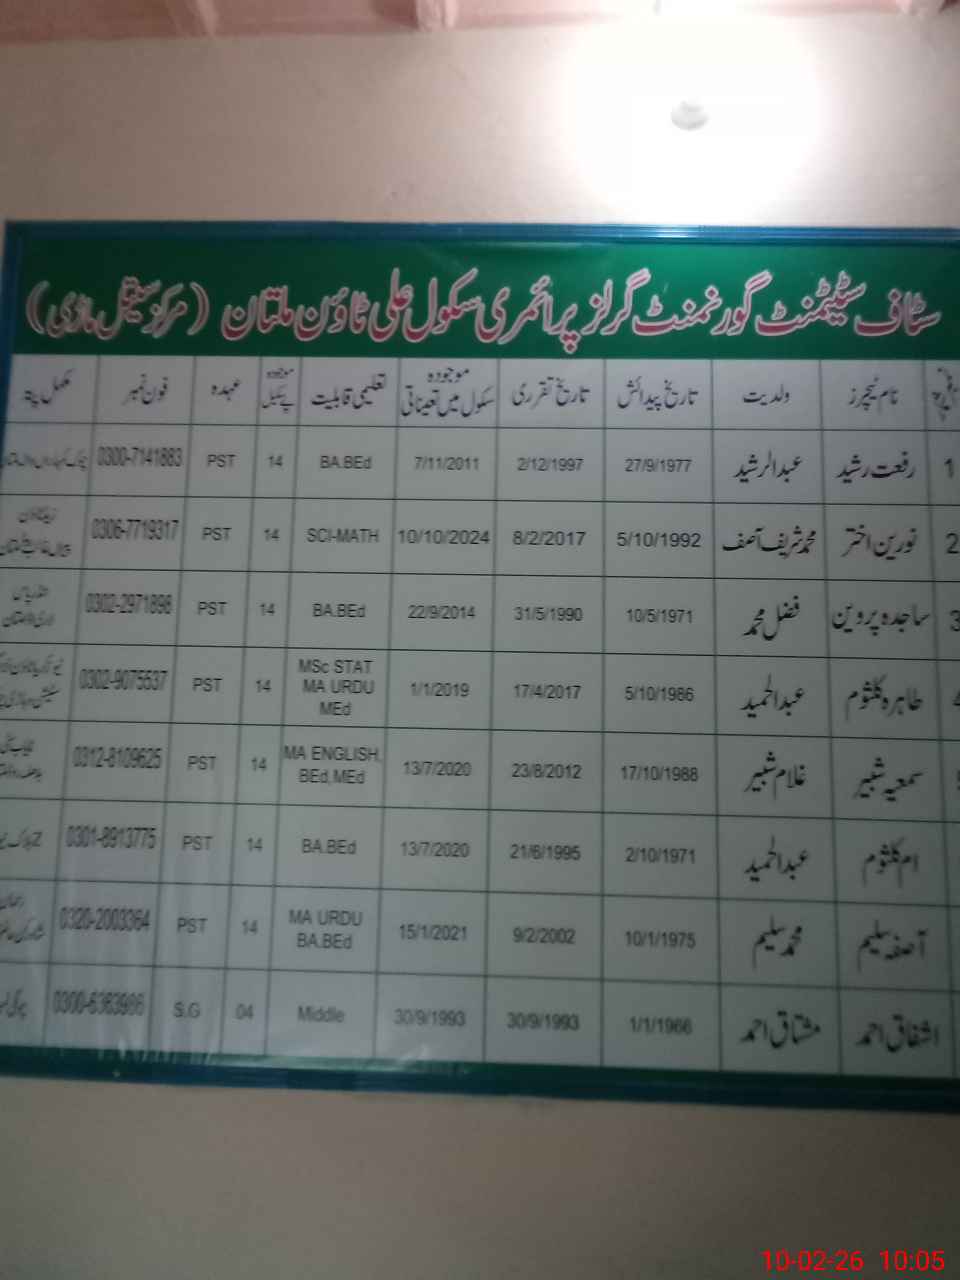 سٹاف سٹیٹمنٹ گورنمنٹ گرلز پرائمری سکول علی ٹاؤن ملتان (مرکز سیتل ماڑی)
نام ٹیچرز ولدیت تاریخ پیدائش تاریخ تقرری موجودہ سکول میں تعیناتی تعلیمی قابلیت موجودہ پے سکیل عہدہ فون نمبر مکمل پتہ
1 رفعت رشید عبدالرشید 27/9/1977 2/12/1997 7/11/2011 BA.BEd 14 PST 0300-7141883
2 نورین اختر محمد شریف آصف 5/10/1992 8/2/2017 10/10/2024 SCI-MATH 14 PST 0306-7719317
3 ساجدہ پروین فضل محمد 10/5/1971 31/5/1990 22/9/2014 BA.BEd 14 PST 0302-2971898
طاہرہ کلثوم عبدالحمید 5/10/1986 17/4/2017 1/1/2019 MSc STAT MA URDU MEd 14 PST 0302-9075537
سمعیہ شبیر غلام شبیر 17/10/1988 23/8/2012 13/7/2020 MA ENGLISH, BEd,MEd 14 PST 0312-8109625
ام کلثوم عبدالحمید 2/10/1971 21/6/1995 13/7/2020 BA.BEd 14 PST 0301-8913775
آصفہ سلیم محمد سلیم 10/1/1975 9/2/2002 15/1/2021 MA URDU BA.BEd 14 PST 0320-2003364
اشفاق احمد مشتاق احمد 1/1/1966 30/9/1993 30/9/1993 Middle 04 S.G 0300-6363986
10-02-26 10:05